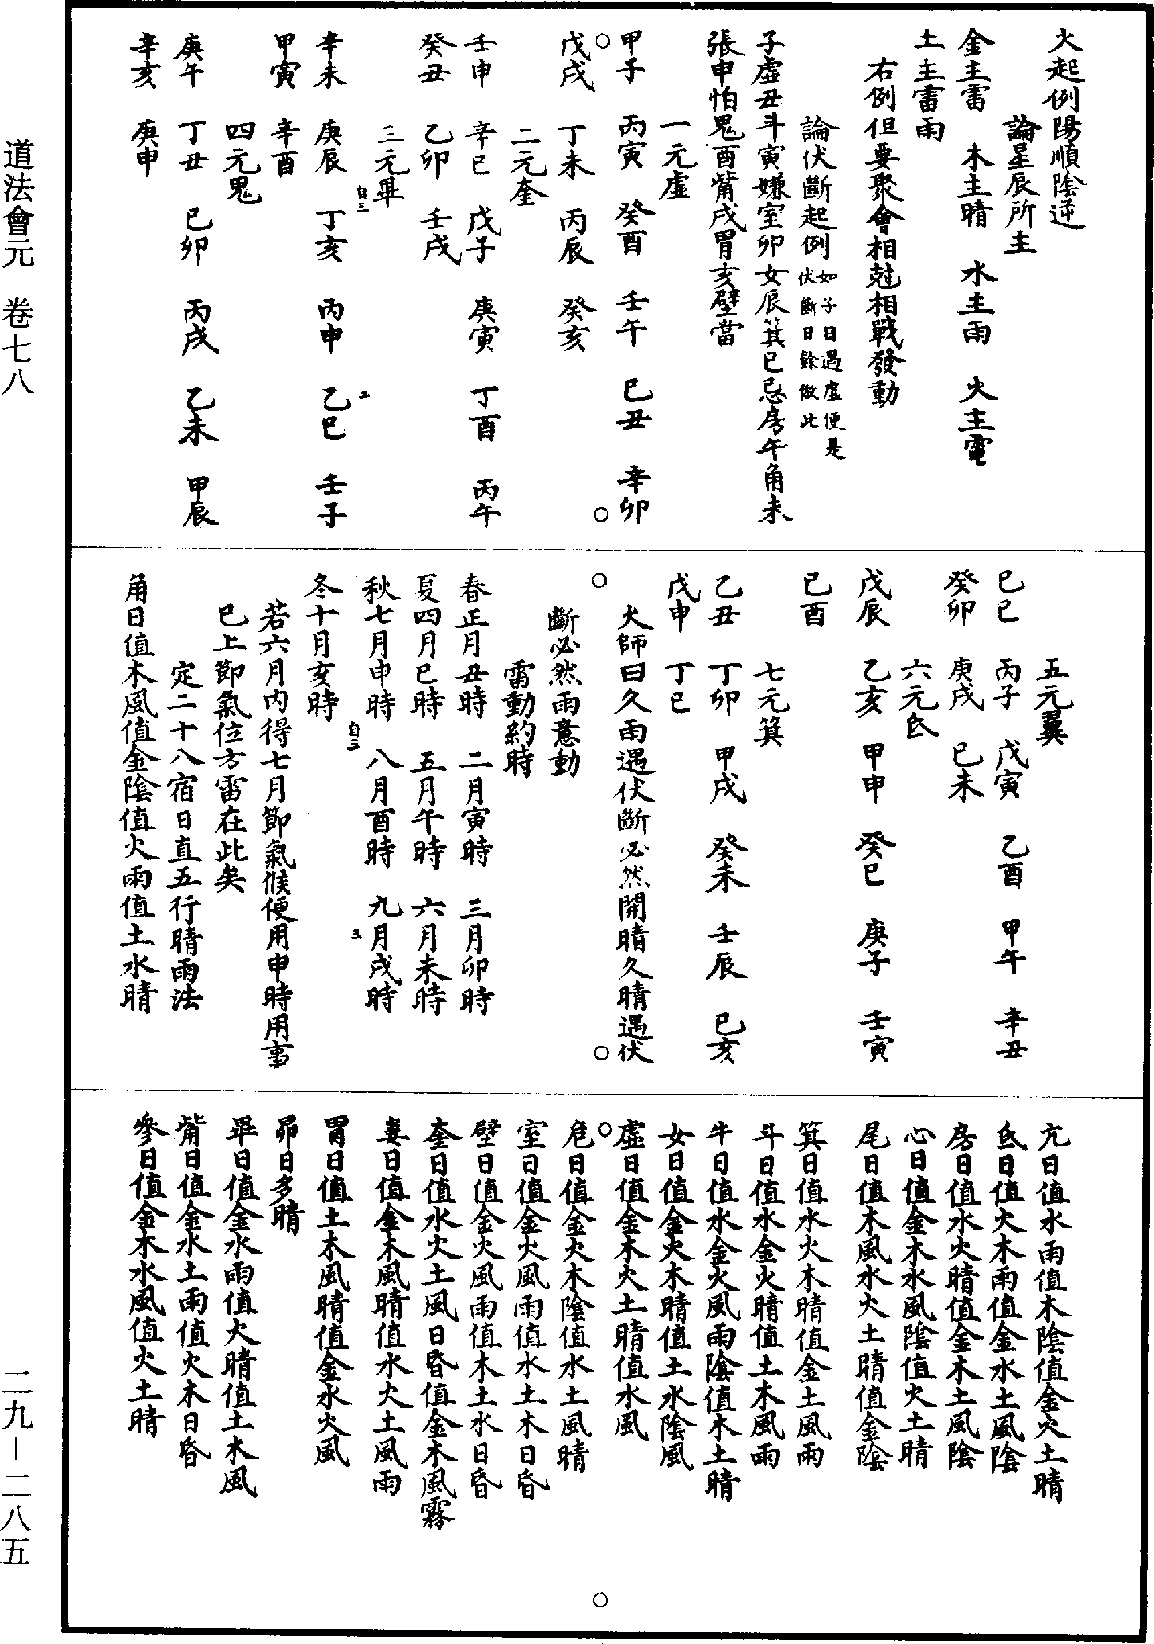 火起例陽順陰逆
論星辰所主
金主雷　木主晴　水主雨　火主電
土主雷雨
右例但要聚會相尅相戰發動
論伏斷起例如子日遇虛便是伏斷日餘倣此
子虛丑斗寅嫌室卯女辰箕巳忌房午角未
張申怕鬼酉觜戌胃亥壁當
一元虛
甲子　丙寅　癸酉　壬午　己丑　辛卯
戊戌　丁未　丙辰　癸亥
二元奎
壬申　辛巳　戊子　庚寅　丁酉　丙午
癸丑　乙卯　壬戌
三元畢
辛未　庚辰　丁亥　丙申　乙巳　壬子
甲寅　辛酉
四元鬼
庚午　丁丑　己卯　丙戌　乙未　甲辰
辛亥　庚申
五元翼
己巳　丙子　戊寅　乙酉　甲午　辛丑
癸卯　庚戌　己未
六元氐
戊辰　乙亥　甲申　癸巳　庚子　壬寅
己酉
七元箕
乙丑　丁卯　甲戌　癸未　壬辰　己亥
戊申　丁巳
火師曰久雨遇伏斷必然開晴久晴遇伏
斷必然雨意動
雷動約時
春正月丑時　二月寅時　三月卯時
夏四月巳時　五月午時　六月未時
秋七月申時　八月酉時　九月戌時
冬十月亥時
若六月內得七月節氣候便用申時用事
已上節氣位方雷在此矣
定二十八宿日直五行晴雨法
角日值木風值金陰值火雨值土水晴
亢日值水雨值木陰值金火土晴
氐日值火木雨值金水土風陰
房日值水火晴值金木土風陰
心日值金木水風陰值火土晴
尾日值木風水火土晴值金陰
箕日值水火木晴值金土風雨
斗日值水金火晴值土木風雨
牛日值水金火風雨陰值木土晴
女日值金火木晴值土水陰風
虛日值金木火土晴值水風
危日值金火木陰值水土風晴
室日值金火風雨值水土木日昏
壁日值金火風雨值木土水日昏
奎日值水火土風日昏值金木風霧
婁日值金木風晴值水火土風雨
胃日值土木風晴值金水火風
昴日多晴
畢日值金水雨值火晴值土木風
觜日值金水土雨值火木日昏
參日值金木水風值火土晴
道法會元　卷七八
二九－二八五